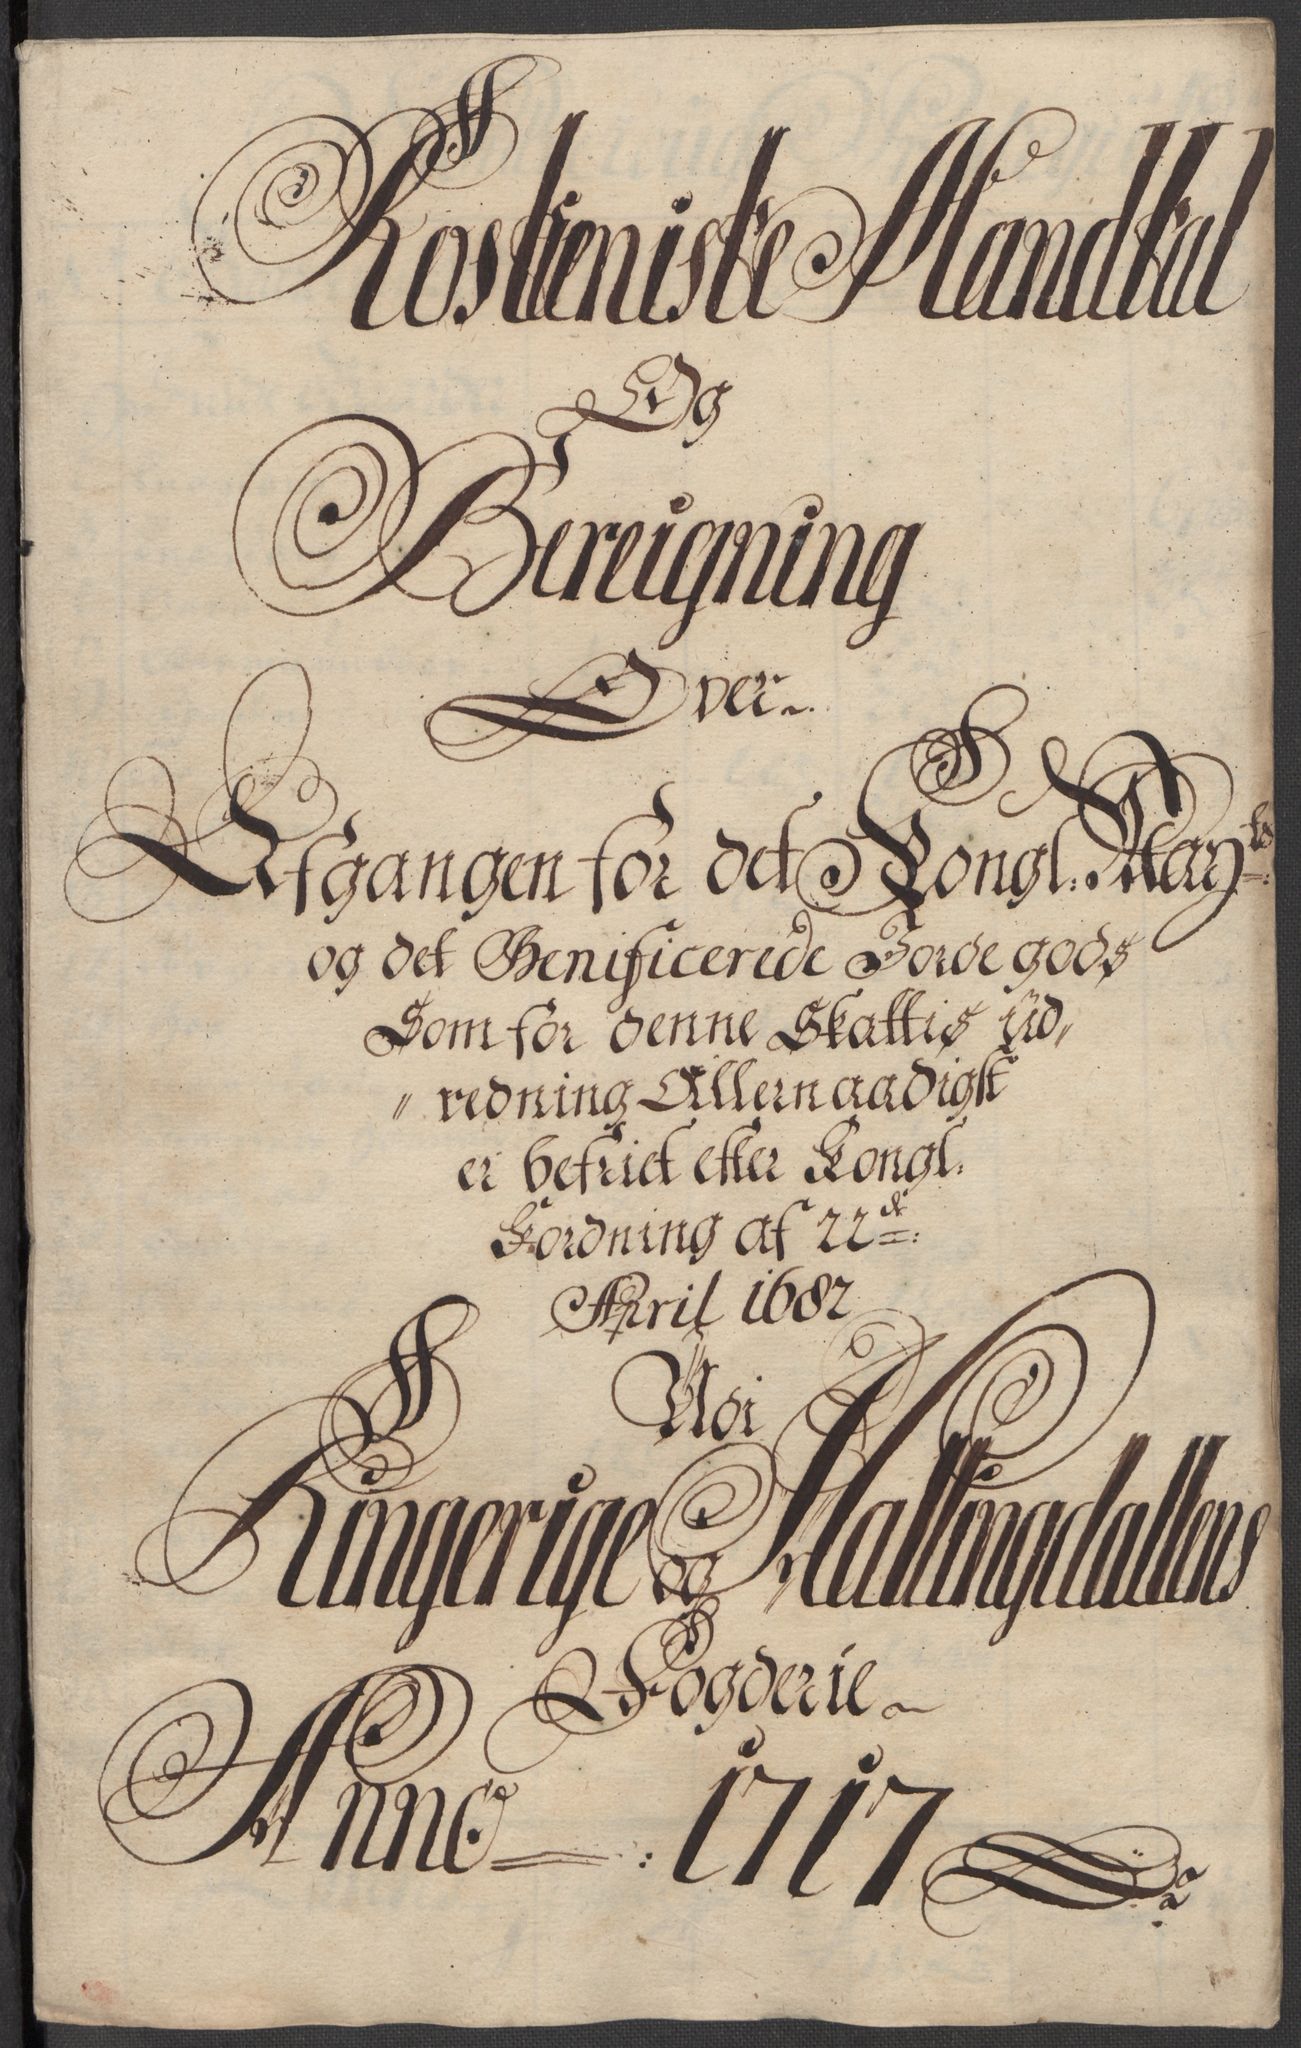 Rostieniste Mandtal
Og
Bereigning
Over
Afgangen for det Kongl: May:ts
og det Benificerede Jorde gods
Som for denne Skattis Ud„
„redning Allernaadigst
er befriet efter Kongl.
Fordning af 22de:
April 1682
Udi
Ringerige og Hallingdallens
Fogderie
Anno : 1717